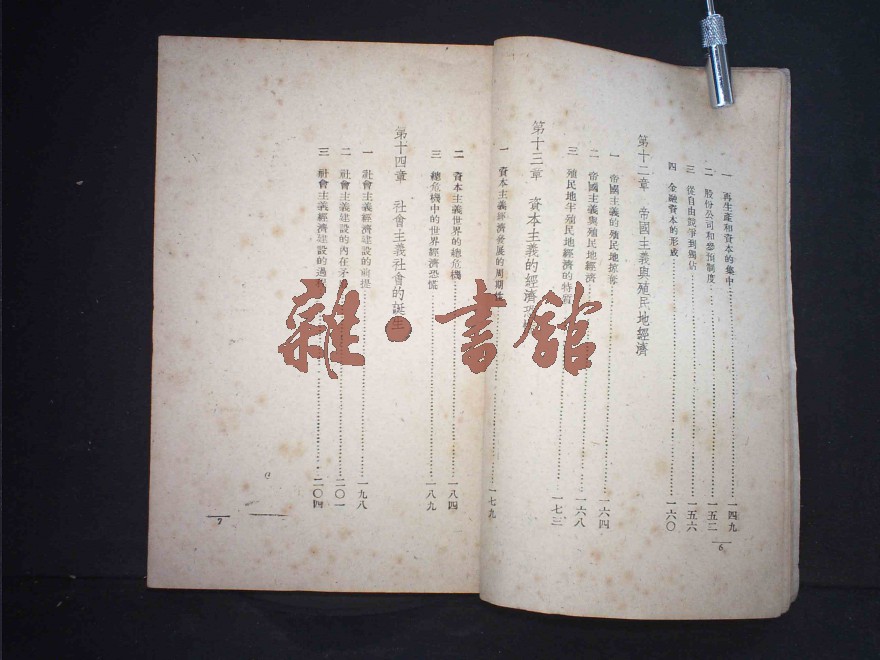 一 再生產和資本的集中……一四九
二 股份公司和參預制度……一五二
三 從自由競爭到獨佔……一五六
四 金融資本的形成……一六〇
第十二章 帝國主義與殖民地經濟
一 帝國主義的殖民地掠奪……一六四
二 帝國主義與殖民地經濟……一六八
三 殖民地半殖民地經濟的特質……一七三
6
第十三章 資本主義的經濟
一 資本主義經濟發展的周期性……一七九
二 資本主義世界的總危機……一八四
三 總危機中的世界經濟恐慌……一八九
第十四章 社會主義社會的誕生
一 社會主義經濟建設的前提……一九八
二 社會主義建設的內在矛……二〇一
三 社會主義經濟建設的過程……二〇四
7
雜·書館